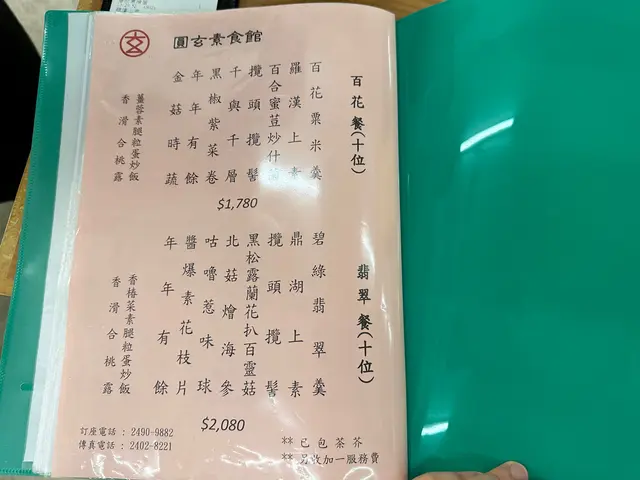 圓玄素食館
百花餐(十位)
百花粟米羹
羅漢上素
百合蜜荳炒什
攬頭攬髻
千與千層
黑椒紫菜卷
年年有餘
金菇時蔬
薑蓉素腿粒蛋炒飯
香滑合桃露
$1,780
翡翠餐(十位)
碧綠翡翠羹
鼎湖上素
攬頭攬髻
黑松露蘭花扒百靈菇
北菇燴海參
咕嚕惹味球
醬爆素花枝片
年年有餘
香椿菜素腿粒蛋炒飯
香滑合桃露
$2,080
訂座電話 : 2490-9882
傳真電話 : 2402-8221
** 已包茶芥
** 另收加一服務費